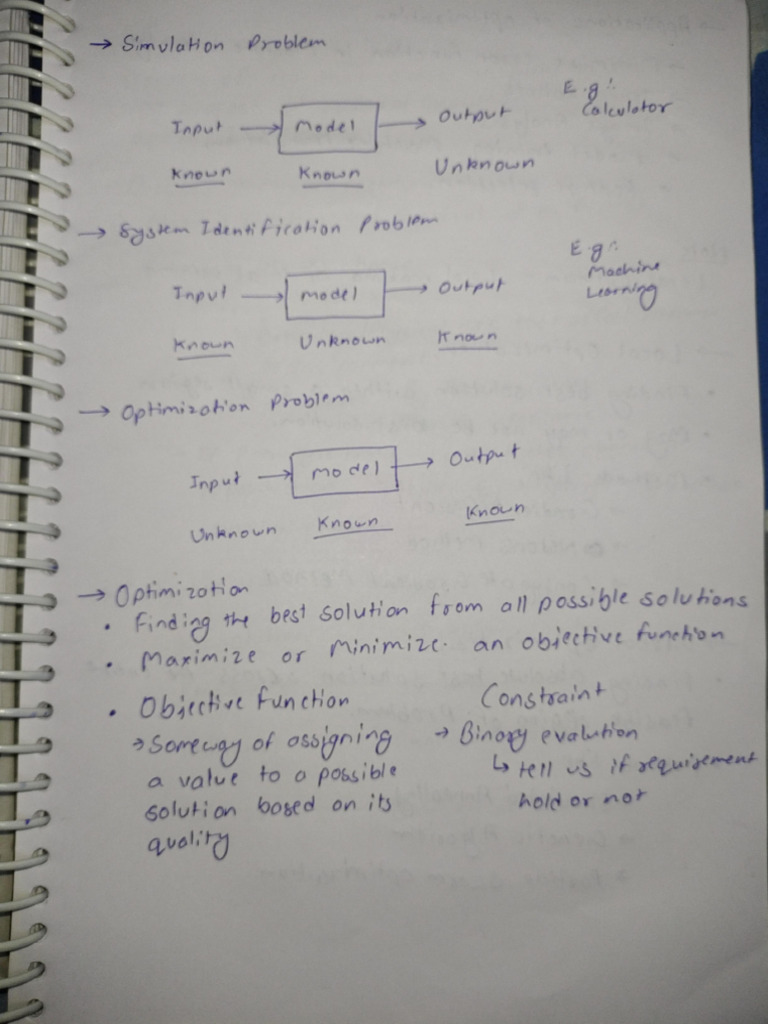 → Simulation Problem
E.g:
Calculator
Input → Model → Output
Known Known Unknown
→ System Identification Problem
E.g:
Machine
Learning
Input → Model → Output
Known Unknown Known
→ Optimization Problem
Input → Model → Output
Unknown Known Known
→ Optimization
• Finding the best solution from all possible solutions
• Maximize or Minimize. an objective function
• Objective function
→ Someway of assigning
a value to a possible
solution based on its
quality
Constraint
→ Binary evalution
↳ tell us if requirement
hold or not